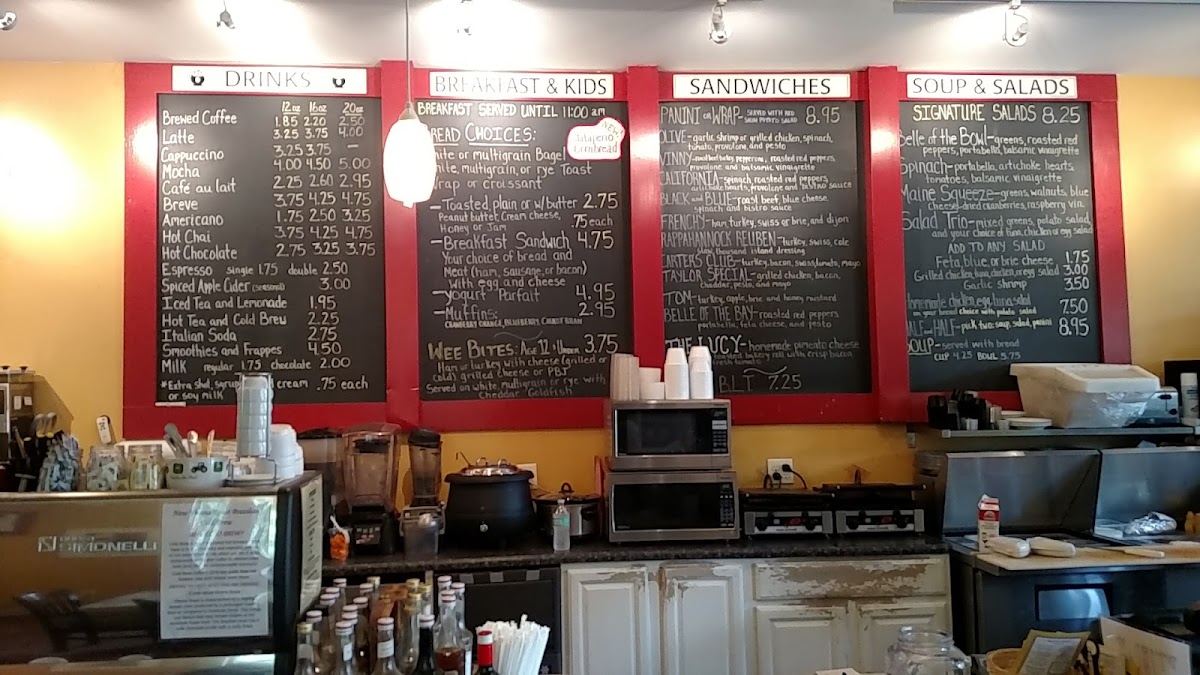 DRINKS
12oz 16oz 20oz
Brewed Coffee 1.85 2.20 2.50
Latte 3.25 3.75 4.00
Cappuccino 3.25 3.75 —
Mocha 4.00 4.50 5.00
Café au lait 2.25 2.60 2.95
Breve 3.75 4.25 4.75
Americano 1.75 2.50 3.25
Hot Chai 3.75 4.25 4.75
Hot Chocolate 2.75 3.25 3.75
Espresso single 1.75 double 2.50
Spiced Apple Cider (seasonal) 3.00
Iced Tea and Lemonade 1.95
Hot Tea and Cold Brew 2.25
Italian Soda 2.75
Smoothies and Frappes 4.50
Milk regular 1.75 chocolate 2.00
*Extra shot, syrup cream .75 each
or soy milk
BREAKFAST & KIDS
BREAKFAST SERVED UNTIL 11:00 am
BREAD CHOICES:
NEW!
Jalapeño
Cornbread
White or multigrain Bagel
White, multigrain, or rye Toast
Wrap or croissant
-Toasted plain or w/butter 2.75
Peanut butter, Cream cheese,
Honey or Jam .75 each
-Breakfast Sandwich 4.75
Your choice of bread and
Meat (ham, sausage, or bacon)
with egg and cheese
-Yogurt Parfait 4.95
-Muffins: 2.95
CRANBERRY ORANGE, BLUEBERRY, CARROT RAISIN
WEE BITES: Age 12 + Under 3.75
Ham or turkey with cheese (grilled or
cold) grilled cheese or PBJ
Served on white, multigrain or rye with
Cheddar Goldfish
SANDWICHES
PANINI or WRAP- SERVED WITH RED SKIN POTATO SALAD 8.95
OLIVE-garlic shrimp or grilled chicken, spinach,
tomato, provolone and pesto
VINNY- turkey, pepperoni, roasted red peppers,
provolone and balsamic vinaigrette
CALIFORNIA-spinach, roasted red peppers,
artichoke hearts, provolone and bistro sauce
BLACK and BLUE-roast beef, blue cheese,
spinach and bistro sauce
FRENCHY-ham, turkey, swiss or brie, and dijon
RAPPAHANNOCK REUBEN-turkey, swiss, cole
slaw, thousand island dressing
CARTERS CLUB-turkey, bacon, swiss, tomato, mayo
TAYLOR SPECIAL-grilled chicken, bacon,
cheddar, pesto, and mayo
TOM-turkey, apple, brie and honey mustard
BELLE OF THE BAY-roasted red peppers,
portabella, feta cheese, and pesto
THE LUCY-homemade pimento cheese
toasted bakery roll with crisp bacon
fresh tomato
BLT 7.25
SOUP & SALADS
SIGNATURE SALADS 8.25
Belle of the Bowl-greens, roasted red
peppers, portabella, balsamic vinaigrette
Spinach-portabella, artichoke hearts,
tomatoes, balsamic vinaigrette
Maine Squeeze-greens, walnuts, blue
cheese, dried cranberries, raspberry vin.
Salad Trio-mixed greens, potato salad,
and your choice of tuna, chicken or egg salad
ADD TO ANY SALAD
Feta, blue, or brie cheese 1.75
Grilled chicken, tuna, chicken, or egg salad 3.00
Garlic shrimp 3.50
Homemade chicken, egg, tuna, salad
on your bread choice with potato salad 7.50
HALF and HALF-pick two: soup, salad, panini 8.95
SOUP-served with bread
CUP 4.25 BOWL 5.75
SIMONELLI